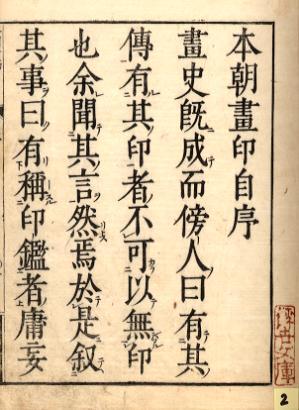 本朝畫印自序
畫史既成而傍人曰有其
傳有其印者不可以無印
也余聞其言然焉於是叙
其事曰有稱印鑑者庸妄
2